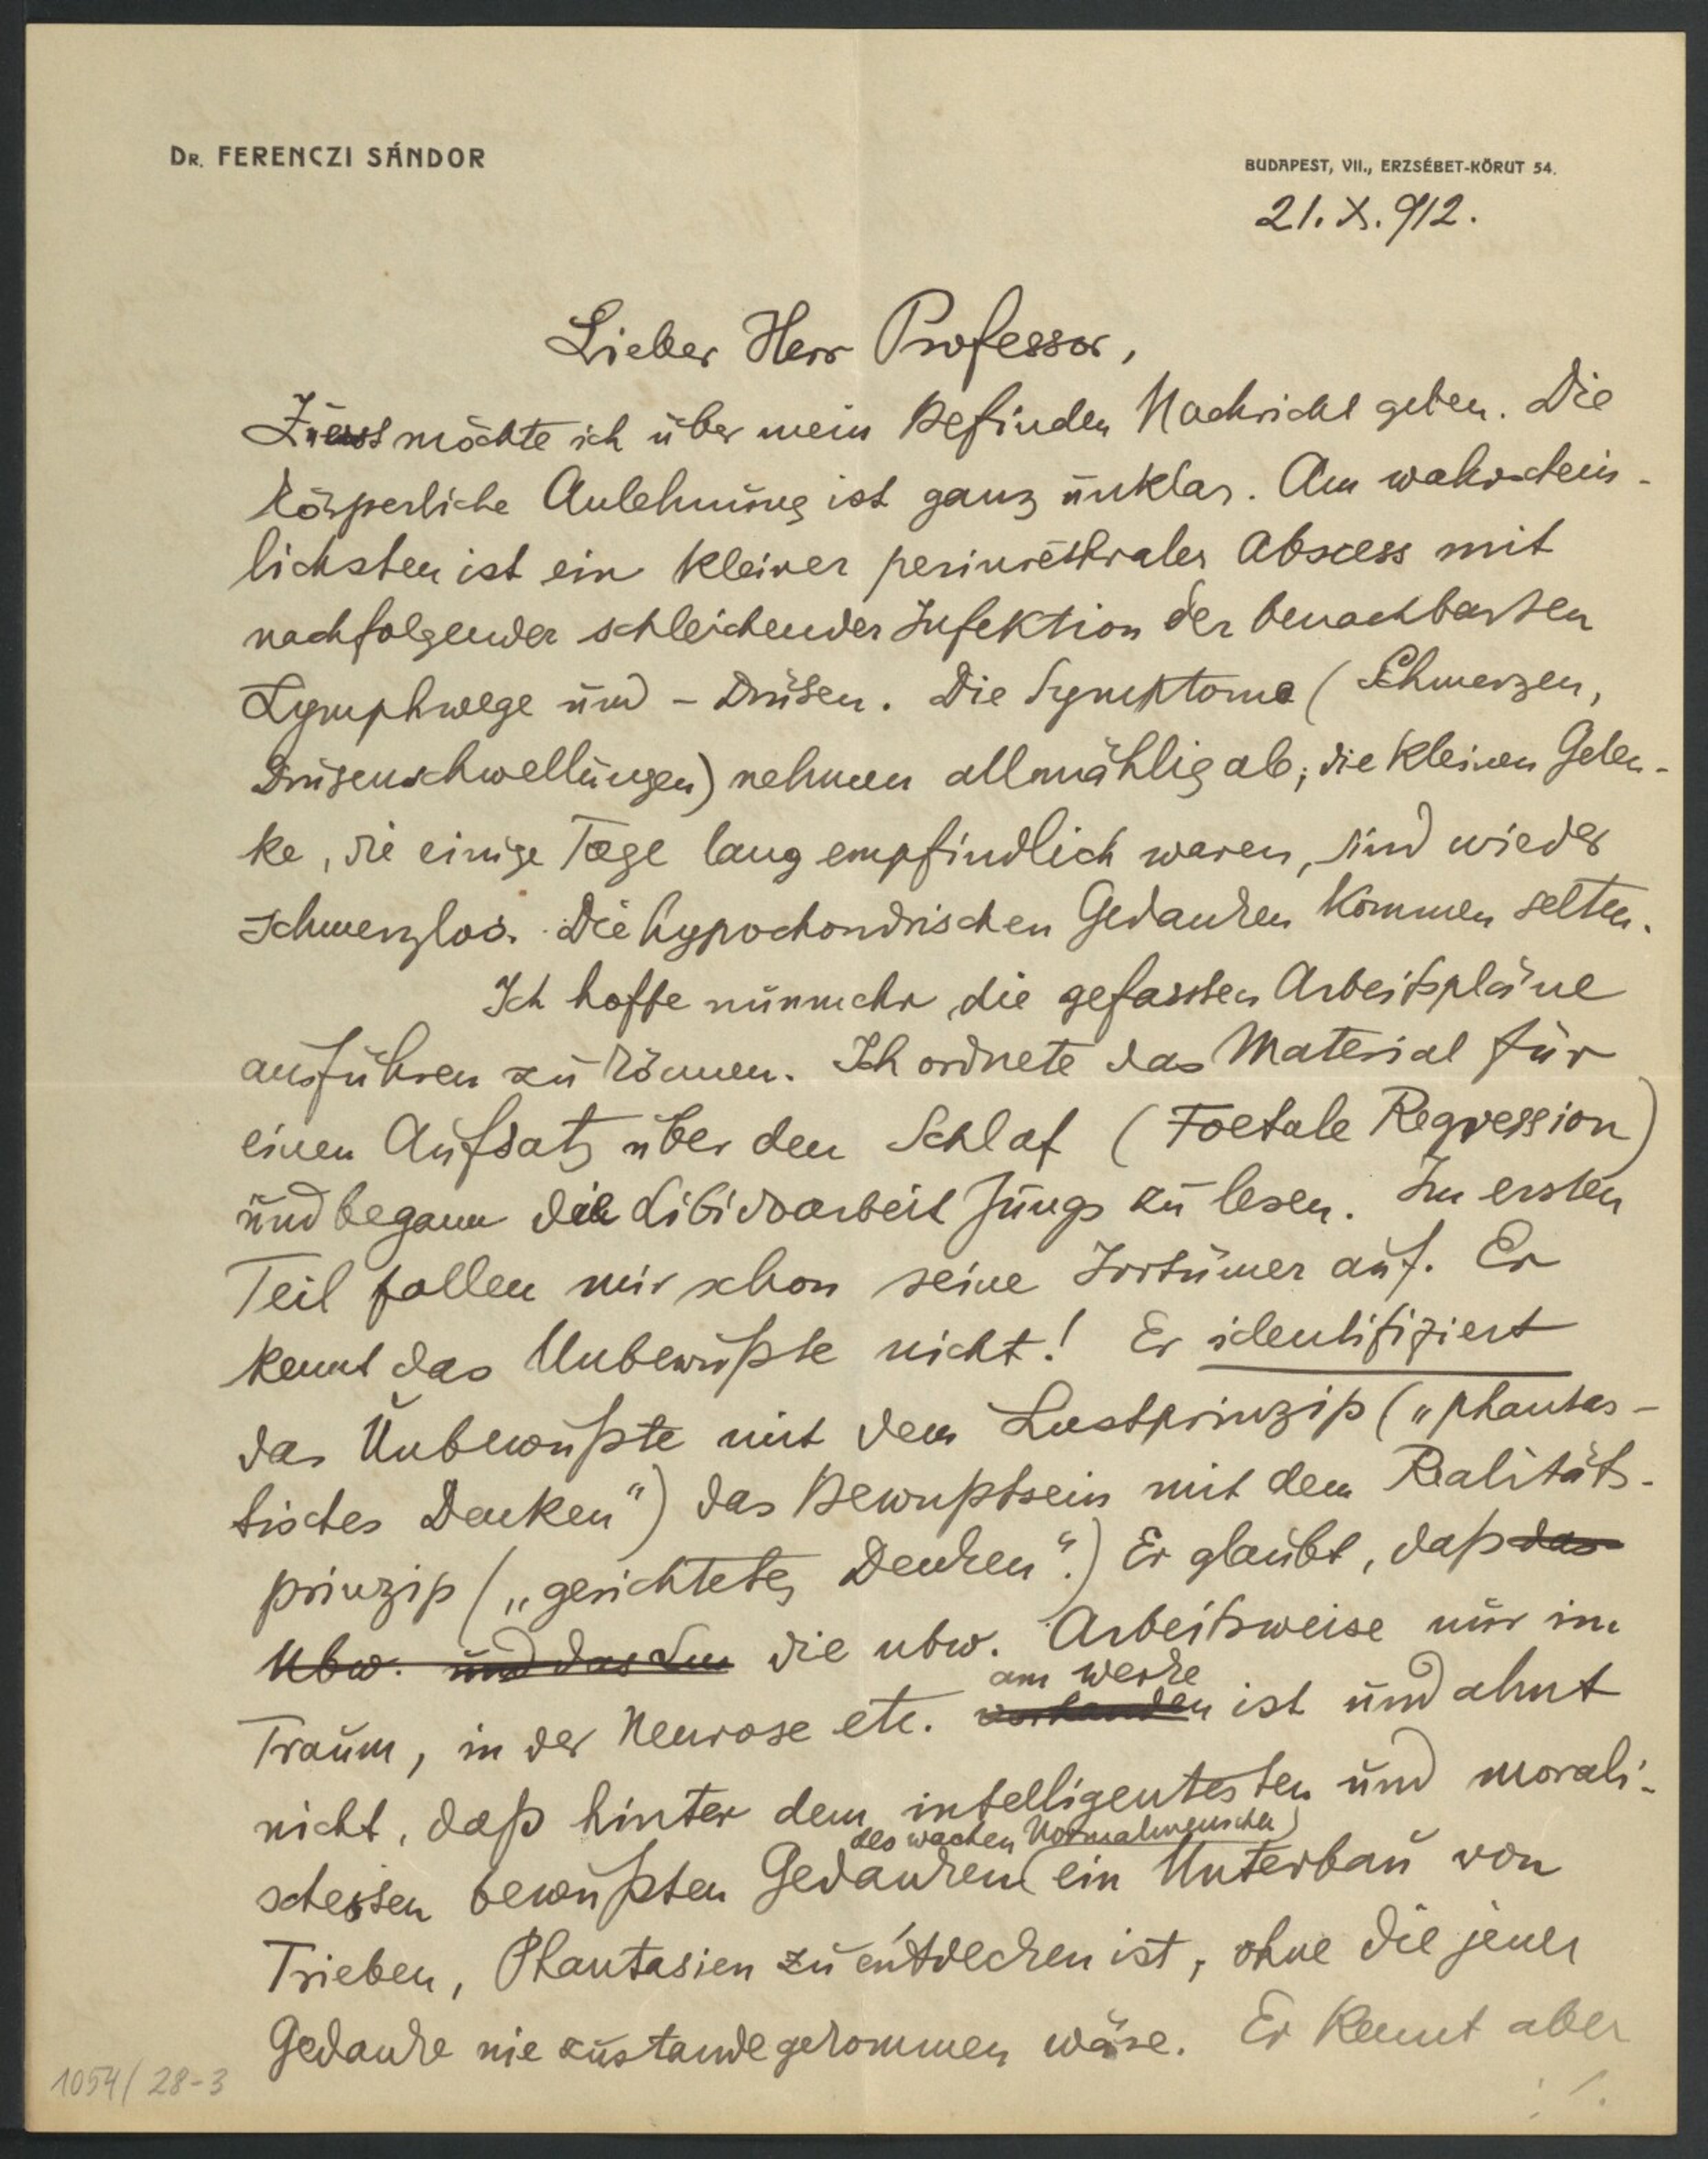 DR. FERENCZI SÁNDOR
BUDAPEST, VII., ERZSÉBET-KÖRUT 54.
21. X. 912.
Lieber Herr Professor,
Zuerst möchte ich über mein Befinden Nachricht geben. Die
körperliche Anlehnung ist ganz unklar. Am wahrschein-
lichsten ist ein kleiner periurethraler Abscess mit
nachfolgender schleichender Infektion der benachbarten
Lymphwege und - Drüsen. Die Symptome (Schmerzen,
Drüsenschwellungen) nehmen allmählig ab; die kleinen Gelen-
ke, die einige Tage lang empfindlich waren, sind wieder
schmerzlos. Die hypochondrischen Gedanken kommen selten.
Ich hoffe nunmehr die gefassten Arbeitspläne
ausführen zu können. Ich ordnete das Material für
einen Aufsatz über den Schlaf (Foetale Regression)
und begann die Libidoarbeit Jungs zu lesen. Im ersten
Teil fallen mir schon seine Irrtümer auf. Er
kennt das Unbewußte nicht! Er identifiziert
das Unbewußte mit dem Lustprinzip („phantas-
tisches Denken“) das Bewußtsein mit dem Realitäts-
prinzip („gerichtetes Denken“.) Er glaubt, daß das
Ubw. und das Lu die ubw. Arbeitsweise nur im
am Werke
Traum, in der Neurose etc. vorhanden ist und ahnt
nicht, daß hinter dem intelligentesten und morali-
des wachen Normalmenschen
schesten bewußten Gedanken ein Unterbau von
Trieben, Phantasien zu entdecken ist, ohne die jener
Gedanke nie zustande gekommen wäre. Er kennt aber
./.
1054/28-3